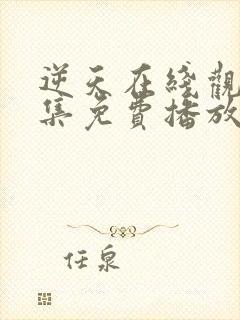 逆天在綫觀
集免費播放
任泉